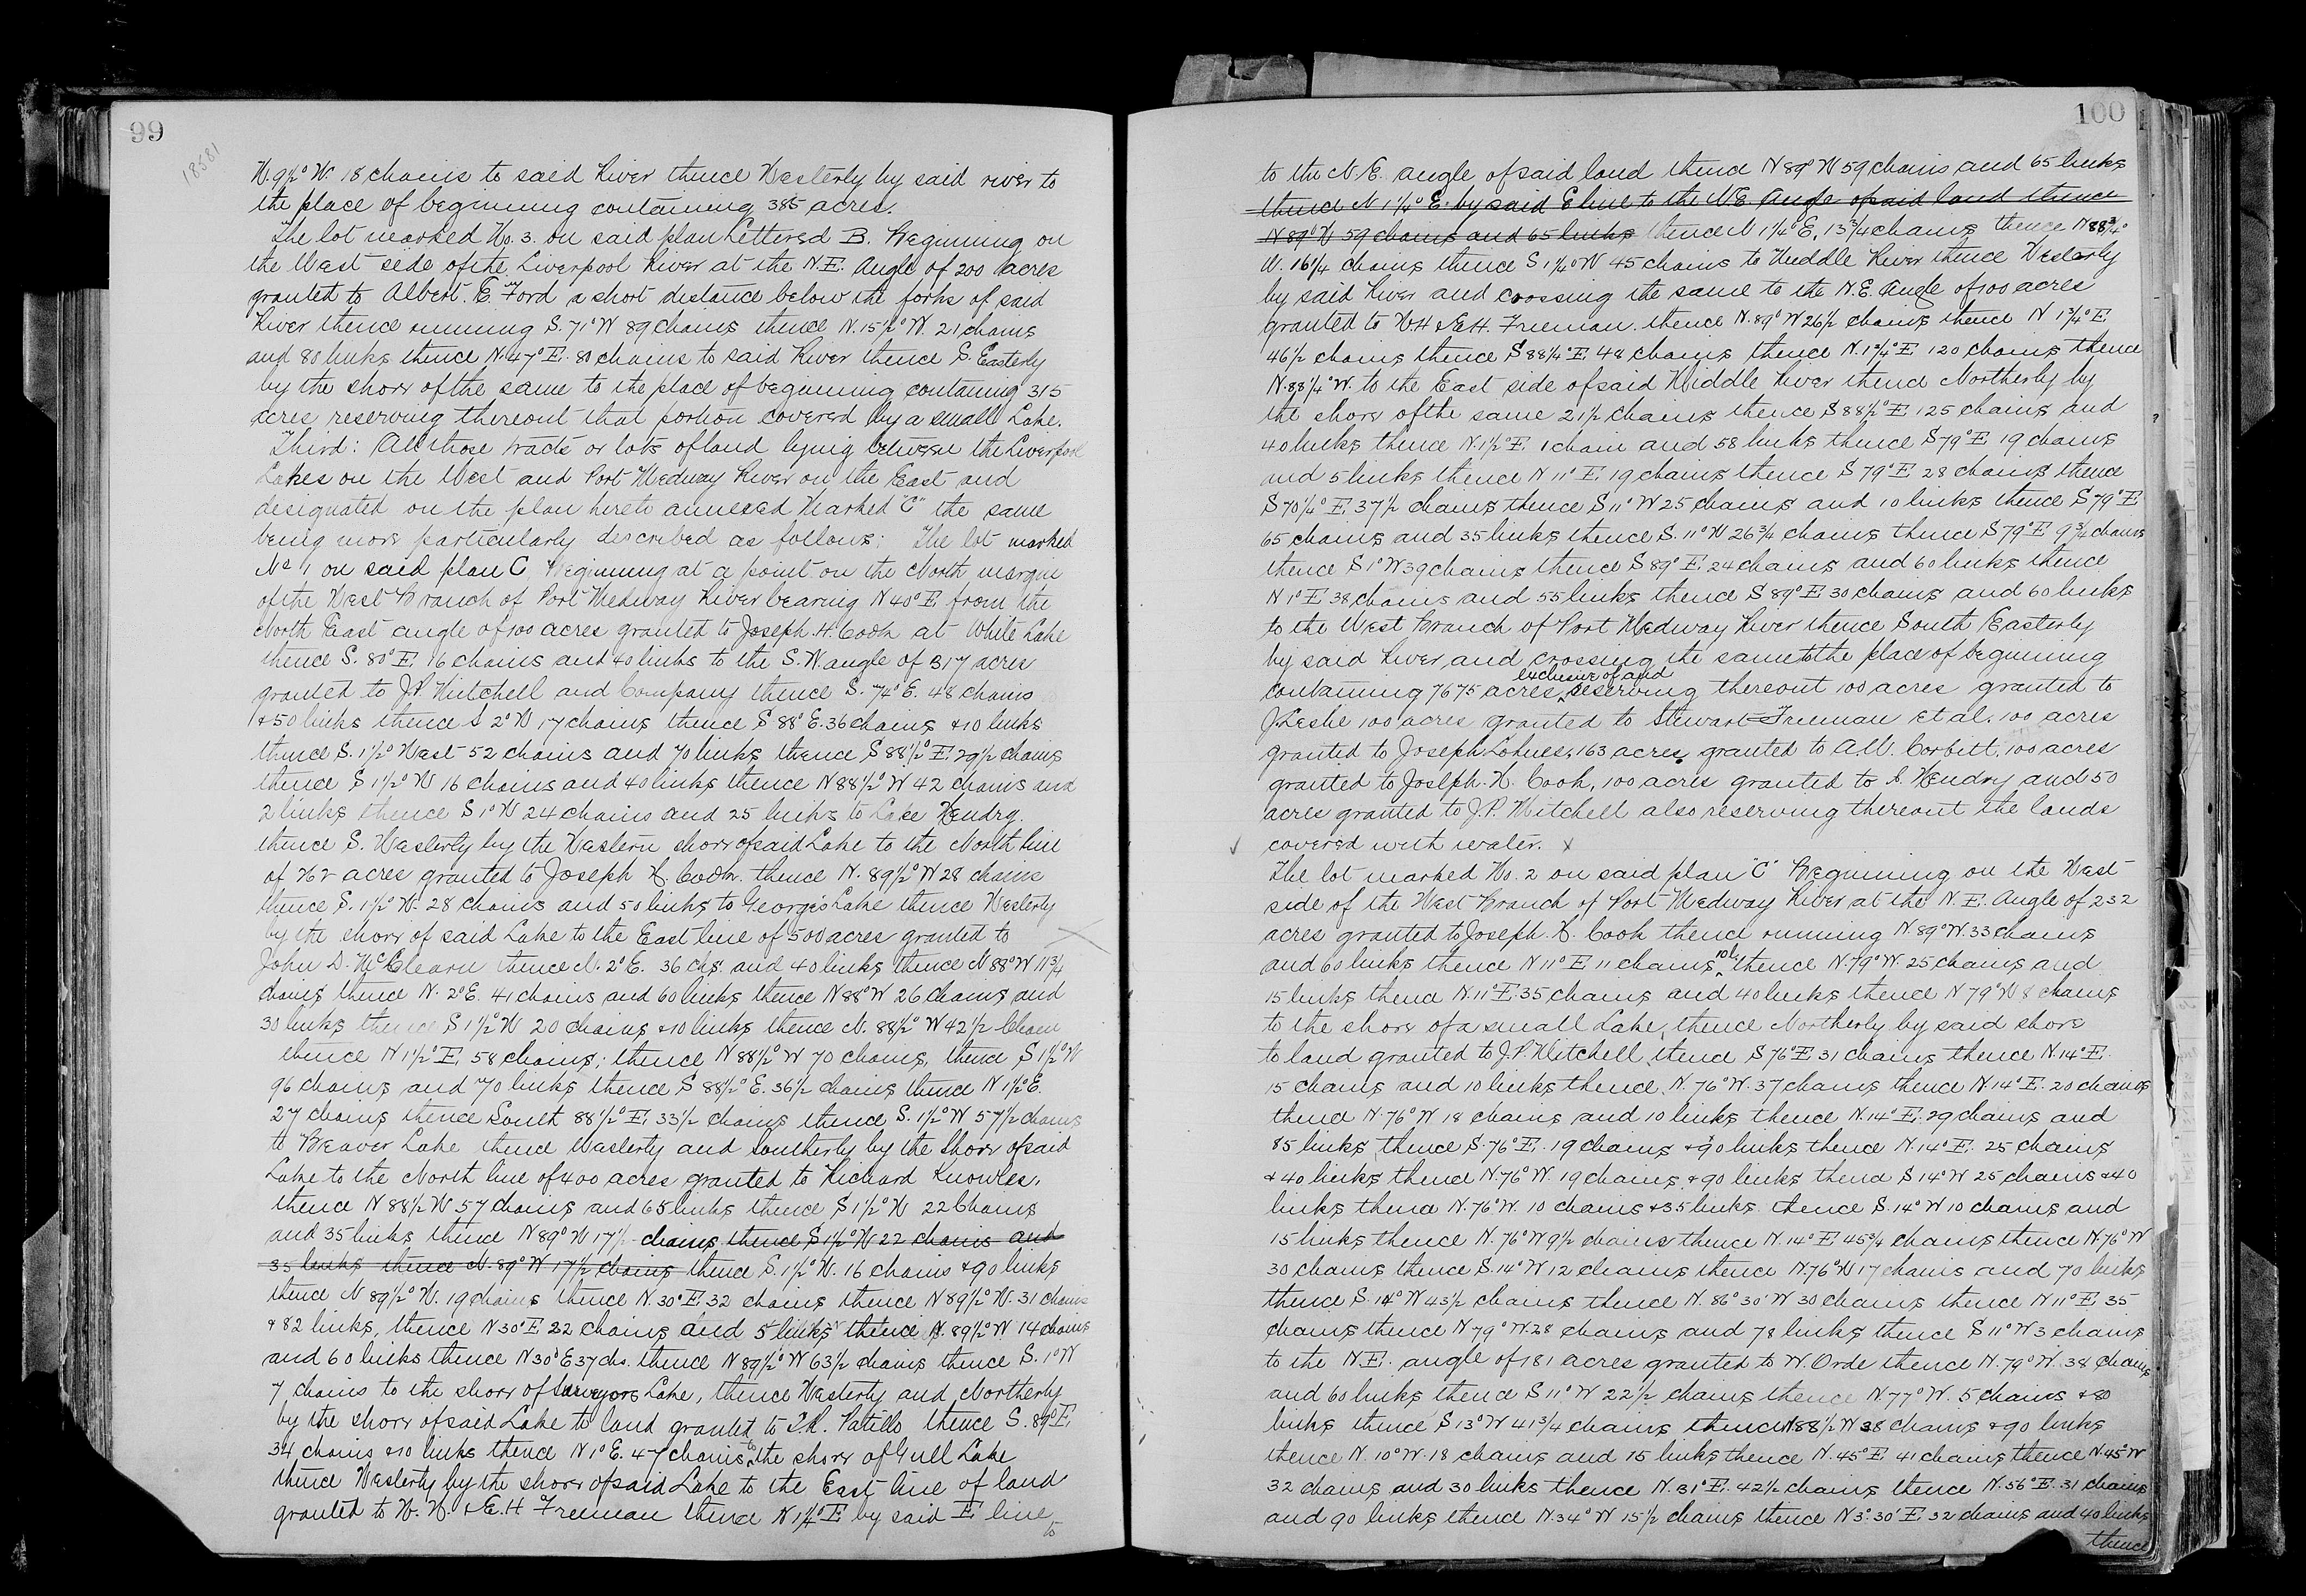 99
18581
N. 9½° W. 18 chains to said River thence Westerly by said river to
the place of beginning containing 385 acres.
The lot marked No. 3. on said plan Lettered B. Beginning on
the West side of the Liverpool River at the N.E. Angle of 200 acres
granted to Albert. E. Ford a short distance below the forks of said
River thence running S. 71° W 89 chains thence N. 15½° W. 21 chains
and 80 links thence N. 47° E. 80 chains to said River thence S. Easterly
by the shore of the same to the place of beginning containing 315
acres reserving thereout that portion covered by a small Lake.
Third: All those tracts or lots of land lying between the Liverpool
Lakes on the West and Port Medway River on the East and
designated on the plan hereto annexed Marked "C" the same
being more particularly described as follows: The lot marked
No 1 on said plan C Beginning at a point on the North margin
of the West Branch of Port Medway River bearing N 40° E from the
North East angle of 100 acres granted to Joseph. H. Cook at White Lake
thence S. 80° E. 16 chains and 40 links to the S. W. angle of 317 acres
granted to J.P. Mitchell and Company thence S. 74° E. 48 chains
& 50 links thence S 2° W 17 chains thence S 88° E. 36 chains & 10 links
thence S. 1½° West 52 chains and 70 links thence S 88½° E. 29½ chains
thence S 1½° W 16 chains and 40 links thence N 88½° W 42 chains and
2 links thence S 1° W 24 chains and 25 links to Lake Hendry.
thence S. Westerly by the Western shore of said Lake to the North line
of 762 acres granted to Joseph H. Cook. thence N. 89½° W 28 chains
thence S. 1½° W. 28 chains and 50 links to George's Lake thence Westerly
by the shore of said Lake to the East line of 500 acres granted to
John D. McClearn thence N. 2° E. 36 chs. and 40 links thence N 88° W 11¾
chains thence N. 2° E. 41 chains and 60 links thence N 88° W 26 chains and
30 links thence S 1½° W 20 chains & 10 links thence N. 88½° W 42½ Chain
thence N 1½° E. 58 chains; thence N 88½° W 70 chains, thence S 1½° W
96 chains and 70 links thence S 88½° E. 36½ chains thence N 1½° E.
27 chains thence South 88½° E. 33½ chains thence S. 1½° W 57½ chains
to Beaver Lake thence Westerly and Southerly by the Shore of said
Lake to the North line of 400 acres granted to Richard Knowles,
thence N 88½ W 57 chains and 65 links thence S 1½° W 22 Chains
and 35 links thence N 89° W 17½ chains thence S 1½° W 22 chains and
35 links thence N. 89° W 17½ chains thence S. 1½° W. 16 chains & 90 links
thence N 89½° W. 19 chains thence N. 30° E. 32 chains thence N 89½° W. 31 chains
& 82 links, thence N 30° E 22 chains and 5 links thence N. 89½° W 14 chains
and 60 links thence N 30° E 37 chs. thence N 89½° W 63½ chains thence S. 1° W
7 chains to the shore of Surveyors Lake, thence Westerly and Northerly
by the shore of said Lake to land granted to Patillo thence S. 89° E.
34 chains & 10 links thence N 1° E. 47 chains to the shore of Gull Lake
thence Westerly by the shore of said Lake to the East line of land
granted to W. H. & E. H Freeman thence N 1¼° E by said E line
to
100
to the N. E. angle of said land thence N 89° W 59 chains and 65 links
thence N 1¼° E. by said E line to the N.E. Angle of said land thence
N 89° W 59 chains and 65 links thence N 1¼° E, 13¾ chains thence N 88¾°
W. 16¼ chains thence S 1¼° W 45 chains to Middle River thence Westerly
by said River and crossing the same to the N.E. angle of 100 acres
granted to W.H & E.H. Freeman. thence N. 89° W 26½ chains thence N 1¾° E.
46½ chains thence S 88¼° E 48 chains thence N. 1¾° E 120 chains thence
N. 88¼° W. to the East side of said Middle River thence Northerly by
the shore of the same 21½ chains thence S 88½° E 125 chains and
40 links thence N. 1½° E. 1 chain and 58 links thence S 79° E 19 chains
and 5 links thence N 11° E. 19 chains thence S 79° E. 28 chains thence
S 70¼° E. 37½ chains thence S 11° W 25 chains and 10 links thence S 79° E
65 chains and 35 links thence S. 11° W 26¾ chains thence S 79° E 9¾ chains
thence S 1° W 39 chains thence S 89° E. 24 chains and 60 links thence
N 1° E 38 chains and 55 links thence S 89° E 30 chains and 60 links
to the West Branch of Port Medway River thence South Easterly
by said River and crossing the same to the place of beginning
exclusive of and
containing 7675 acres, reserving thereout 100 acres granted to
J. Leslie 100 acres granted to Stewart Freeman et al. 100 acres
granted to Joseph Lohnes, 163 acres granted to A.W. Corbitt, 100 acres
granted to Joseph. H. Cook, 100 acres granted to S. Hendry and 50
acres granted to J.P. Mitchell also reserving thereout the lands
covered with water. x
The lot marked No. 2 on said plan "C" Beginning on the West
side of the West Branch of Port Medway River at the N. E. Angle of 232
acres granted to Joseph. H. Cook thence running N. 89° W. 33 chains
and 60 links thence N 11° E 11 chains 10 ls thence N. 79° W. 25 chains and
15 links thence N. 11° E. 35 chains and 40 links thence N 79° W 8 chains
to the shore of a small Lake, thence Northerly by said shore
to land granted to J.P. Mitchell, thence S 76° E 31 chains thence N. 14° E.
15 chains and 10 links thence N. 76° W. 37 chains thence N. 14° E. 20 chains
thence N. 76° W 18 chains and 10 links thence N. 14° E. 29 chains and
85 links thence S. 76° E. 19 chains & 90 links thence N. 14° E. 25 chains
& 40 links thence N. 76° W. 19 chains & 90 links thence S 14° W 25 chains & 40
links thence N. 76° W. 10 chains & 35 links thence S. 14° W 10 chains and
15 links thence N. 76° W 9½ chains thence N. 14° E 45¾ chains thence N. 76° W
30 chains thence S. 14° W 12 chains thence N. 76° W 17 chains and 70 links
thence S. 14° W 43½ chains thence N. 86° 30' W 30 chains thence N 11° E. 35
chains thence N 79° W. 28 chains and 78 links thence S 11° W 3 chains
to the N.E. angle of 181 acres granted to W. Orde thence N. 79° W. 38 chains
and 60 links thence S 11° W 22½ chains thence N 77° W. 5 chains & 80
links thence S 13° W 41¾ chains thence N 88½ W 38 chains & 90 links
thence N. 10° W. 18 chains and 15 links thence N. 45° E 41 chains thence N. 45° W
32 chains and 30 links thence N. 31° E. 42½ chains thence N. 56° E. 31 chains
and 90 links thence N. 34° W 15½ chains thence N 3° 30' E. 32 chains and 40 links
thence